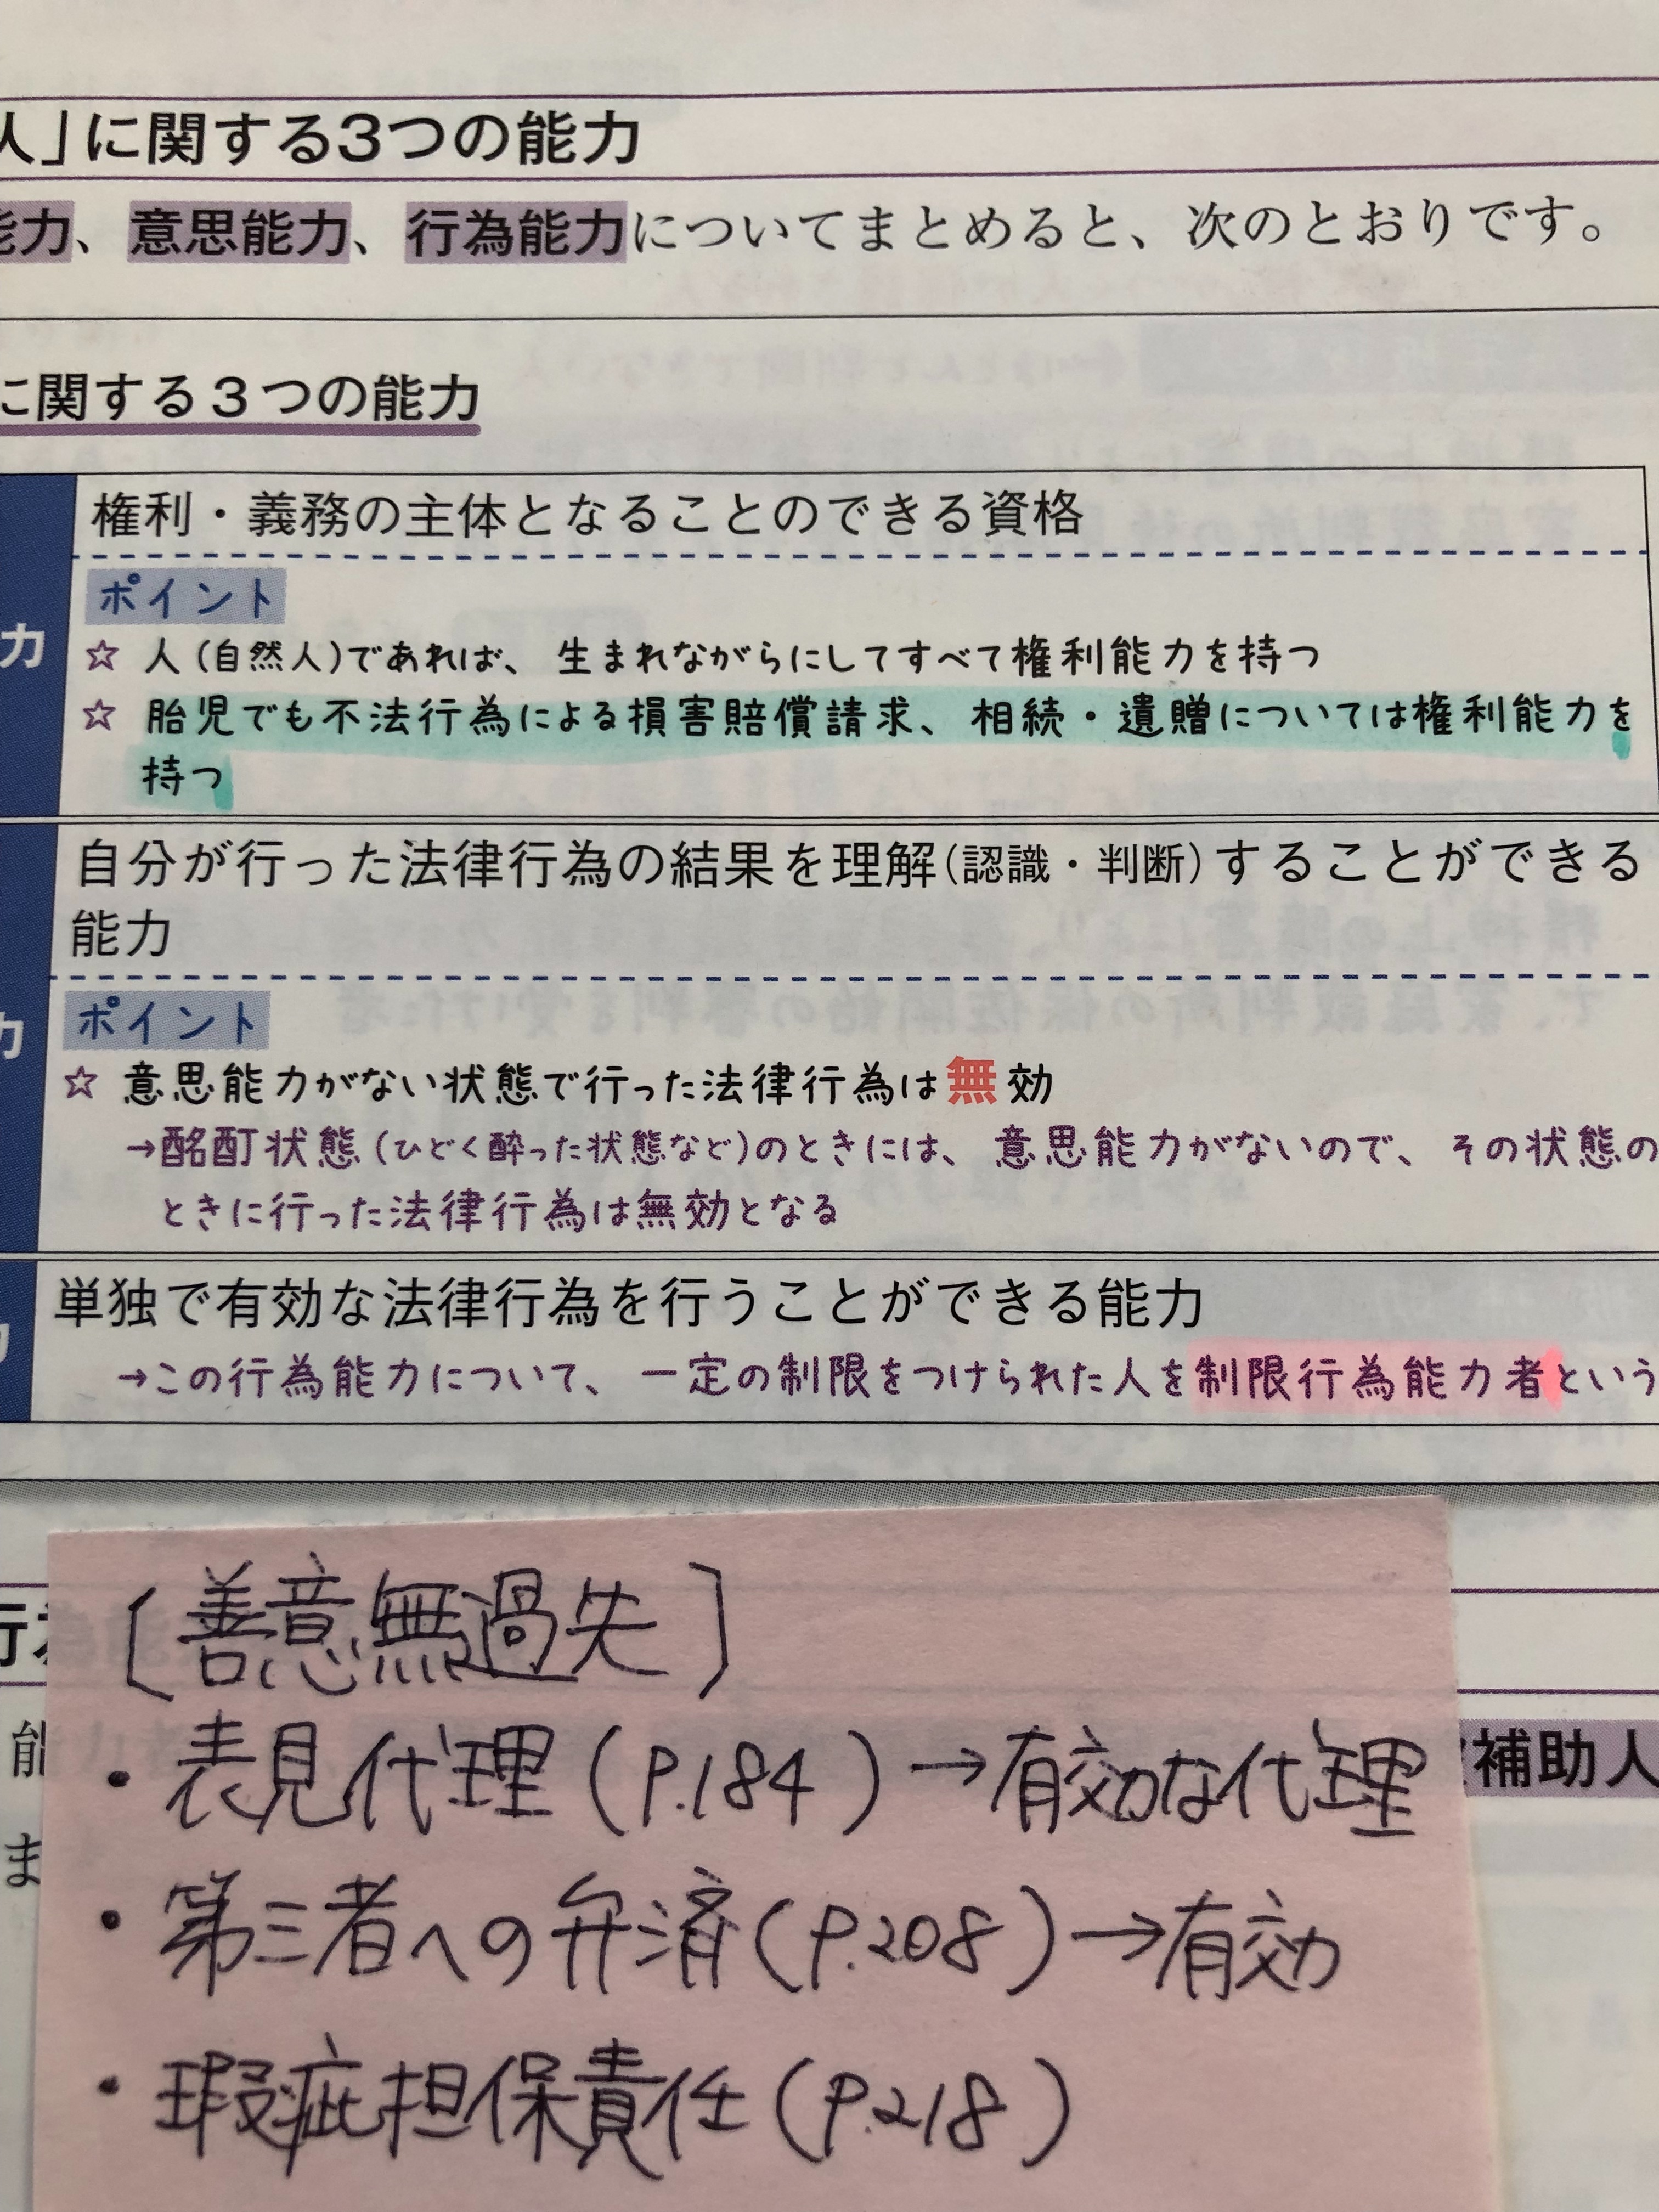 人」に関する3つの能力
能力、意思能力、行為能力についてまとめると、次のとおりです。
に関する3つの能力
権利・義務の主体となることのできる資格
ポイント
力
☆ 人(自然人)であれば、生まれながらにしてすべて権利能力を持つ
☆ 胎児でも不法行為による損害賠償請求、相続・遺贈については権利能力を
持つ
自分が行った法律行為の結果を理解(認識・判断)することができる
能力
力
ポイント
☆ 意思能力がない状態で行った法律行為は無効
→酩酊状態(ひどく酔った状態など)のときには、意思能力がないので、その状態の
ときに行った法律行為は無効となる
単独で有効な法律行為を行うことができる能力
→この行為能力について、一定の制限をつけられた人を制限行為能力者という
〔善意無過失〕
・表見代理(P.184)→有効な代理
・第三者への弁済(P.208)→有効
・瑕疵担保責任(P.218)
行
能
補助人
ま